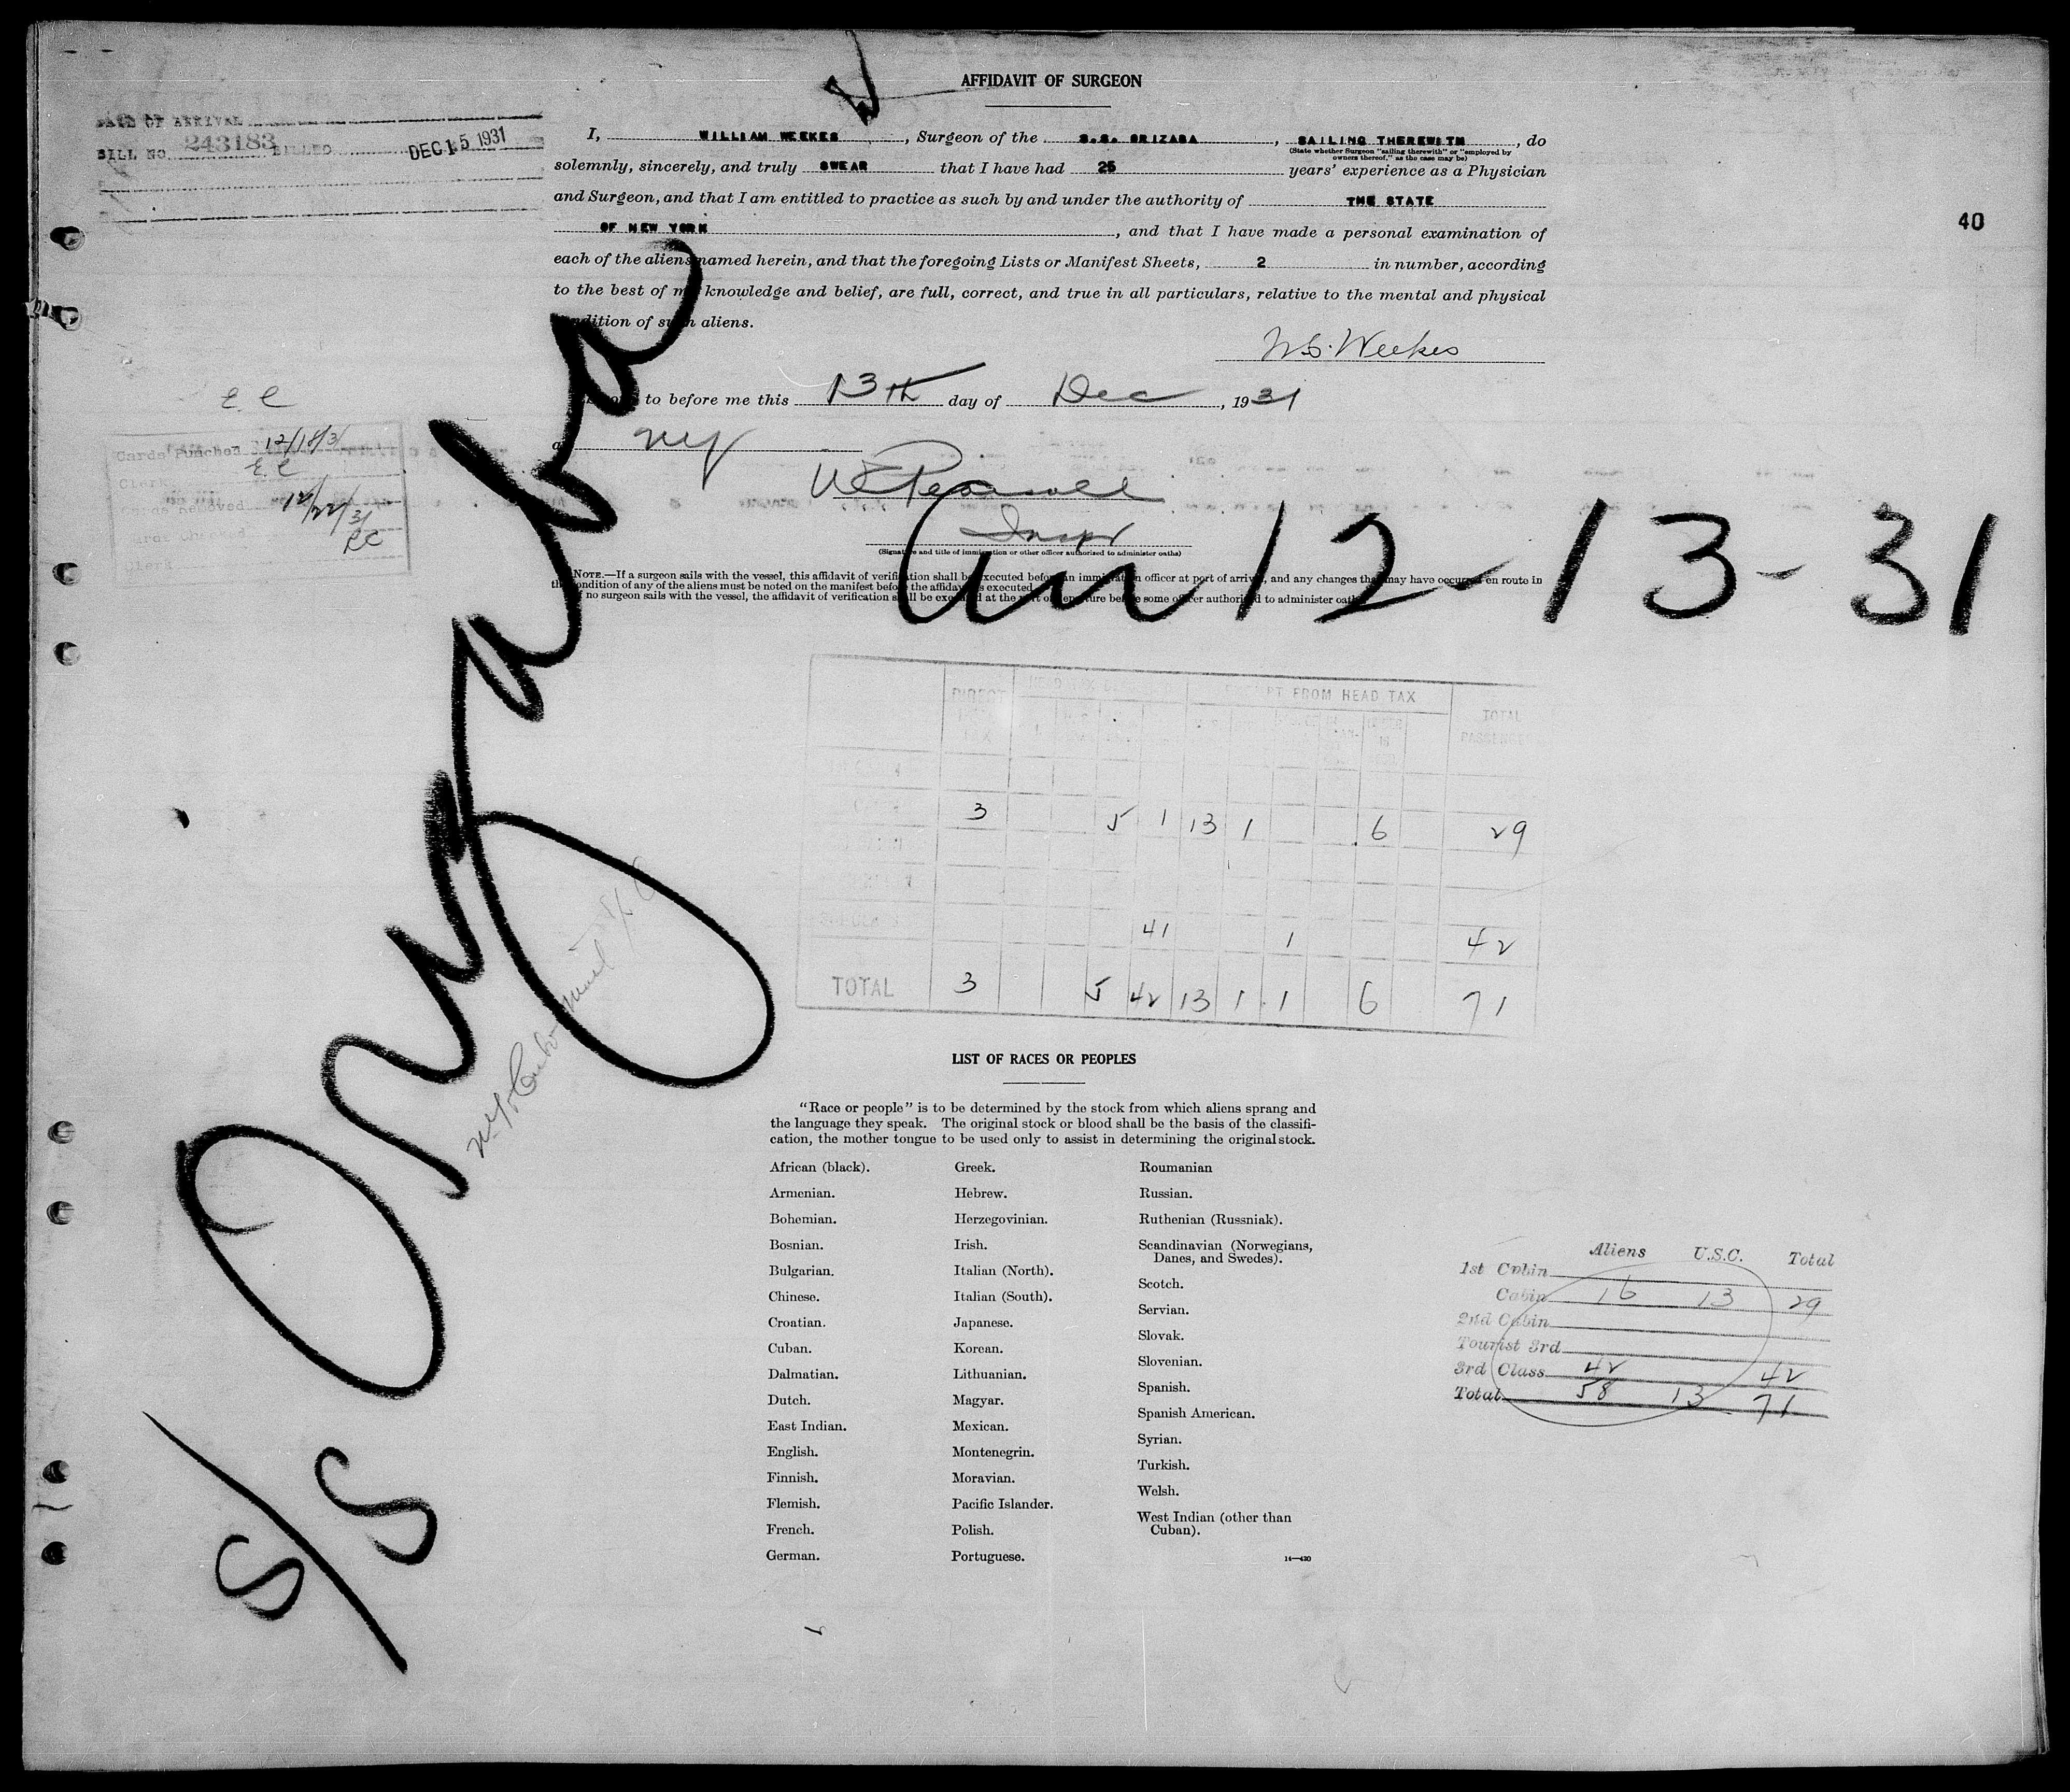 AFFIDAVIT OF SURGEON
DATE OF ARRIVAL
BILL NO. 243183 BILLED DEC 15 1931
I, WILLIAM WEEKES, Surgeon of the S.S. ORIZABA, SAILING THEREWITH, do
(State whether Surgeon "sailing therewith" or "employed by
owners thereof," as the case may be)
solemnly, sincerely, and truly SWEAR that I have had 25 years' experience as a Physician
and Surgeon, and that I am entitled to practice as such by and under the authority of THE STATE
OF NEW YORK, and that I have made a personal examination of
40
each of the aliens named herein, and that the foregoing Lists or Manifest Sheets, 2 in number, according
to the best of my knowledge and belief, are full, correct, and true in all particulars, relative to the mental and physical
condition of such aliens.
W.S. Weekes
to before me this 13th day of Dec, 1931
at NY
Insp
(Signature and title of immigration or other officer authorized to administer oaths)
E C
Cards Punched 12/18/31
Clerk E.C
Cards Removed 12/22/31
RC
Clerk
NOTE.—If a surgeon sails with the vessel, this affidavit of verification shall be executed before an immigration officer at port of arrival, and any changes that may have occurred en route in
the condition of any of the aliens must be noted on the manifest before the affidavit is executed.
If no surgeon sails with the vessel, the affidavit of verification shall be executed at the port of departure before some officer authorized to administer oaths.
Arr 12-13-31
S/S Orizaba
DIRECT HEAD TAX EXEMPT FROM HEAD TAX TOTAL
PASSENGERS
3 5 1 13 1 6 29
41 1 42
TOTAL 3 5 42 13 1 1 6 71
LIST OF RACES OR PEOPLES
"Race or people" is to be determined by the stock from which aliens sprang and
the language they speak. The original stock or blood shall be the basis of the classifi-
cation, the mother tongue to be used only to assist in determining the original stock.
African (black).
Armenian.
Bohemian.
Bosnian.
Bulgarian.
Chinese.
Croatian.
Cuban.
Dalmatian.
Dutch.
East Indian.
English.
Finnish.
Flemish.
French.
German.
Greek.
Hebrew.
Herzegovinian.
Irish.
Italian (North).
Italian (South).
Japanese.
Korean.
Lithuanian.
Magyar.
Mexican.
Montenegrin.
Moravian.
Pacific Islander.
Polish.
Portuguese.
Roumanian
Russian.
Ruthenian (Russniak).
Scandinavian (Norwegians,
Danes, and Swedes).
Scotch.
Servian.
Slovak.
Slovenian.
Spanish.
Spanish American.
Syrian.
Turkish.
Welsh.
West Indian (other than
Cuban).
14—430
Aliens U.S.C. Total
1st Cabin
Cabin 16 13 29
2nd Cabin
Tourist 3rd
3rd Class 42 42
Total 58 13 71